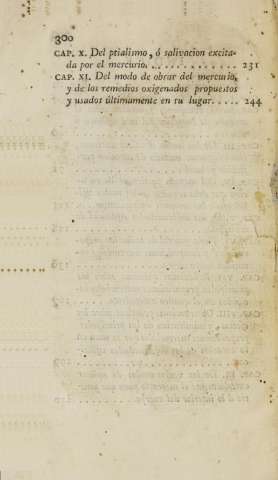 300
CAP. X. Del ptialismo, ó salivacion excita-
da por el mercurio. . . . . . . . . . . . . 231
CAP. XI. Del modo de obrar del mercurio,
y de los remedios oxigenados propuestos
y usados últimamente en su lugar. . . . . 244